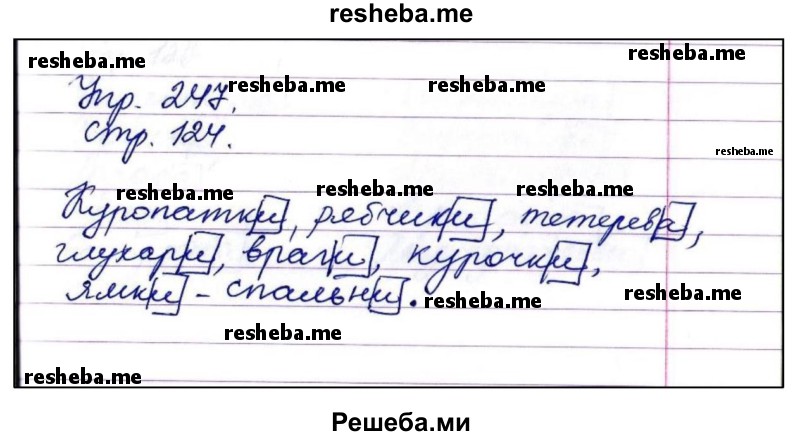 resheba.me
resheba.me
resheba.me
Упр. 247.
resheba.me
resheba.me
стр. 124.
resheba.me
resheba.me
resheba.me
resheba.me
Куропатки, рябчики, тетерева,
глухари, враги, курочки,
ямки - спальни.
resheba.me
resheba.me
resheba.me
resheba.me
Решеба.ми